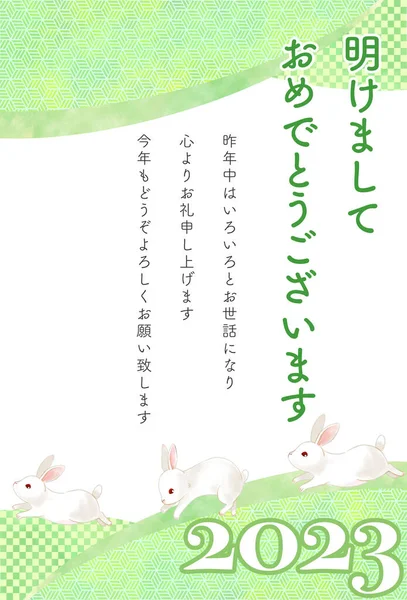 明けまして
おめでとうございます
昨年中はいろいろとお世話になり
心よりお礼申し上げます
今年もどうぞよろしくお願い致します
2023